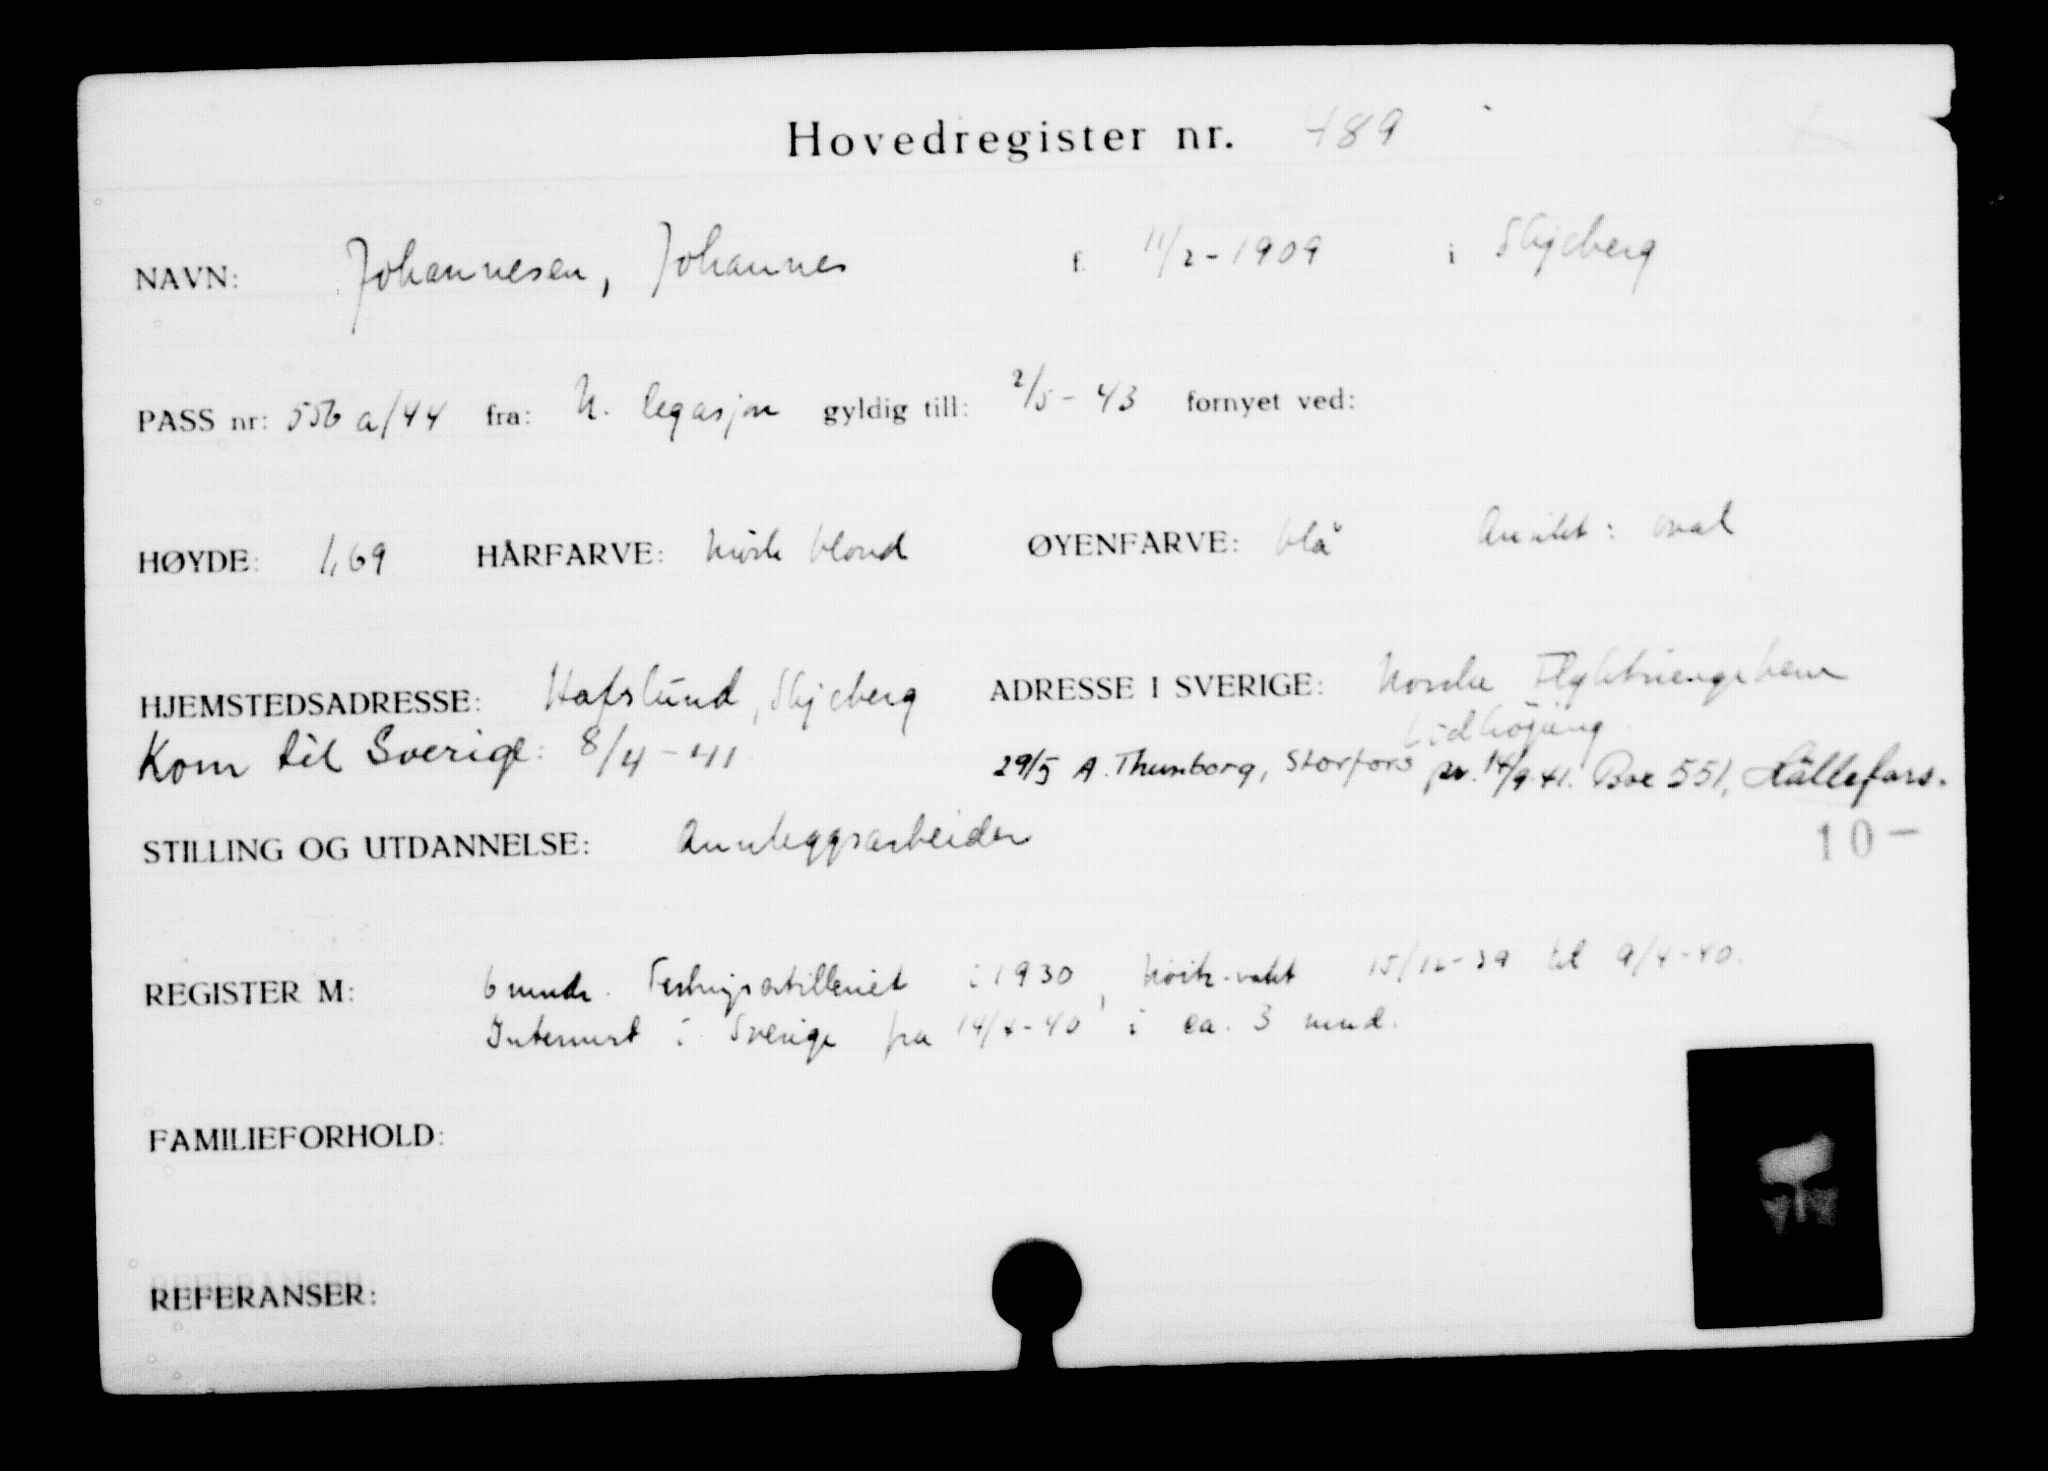 Hovedregister nr. 489
NAVN: Johannesen, Johannes f. 11/2-1909 i Skjeberg
PASS nr: 556 a/44 fra: N. legasjon gyldig till: 2/5-43 fornyet ved:
HØYDE: 1,69 HÅRFARVE: mørk blond ØYENFARVE: blå Ansikt: oval
HJEMSTEDSADRESSE: Hafslund, Skjeberg ADRESSE I SVERIGE: Norske
Kom til Sverige: 8/4-41
29/5 A. Thunborg, Storfors pr. 14/9.41. Box 551, Hällefors.
STILLING OG UTDANNELSE: Annleggsarbeider 10-
REGISTER M: 6 mndr. Festningsartilleriet i 1930, nøitr.vakt 15/12-39 til 9/4-40.
Internert i Sverige fra 14/4-40 i ca. 3 mnd.
FAMILIEFORHOLD:
REFERANSER: